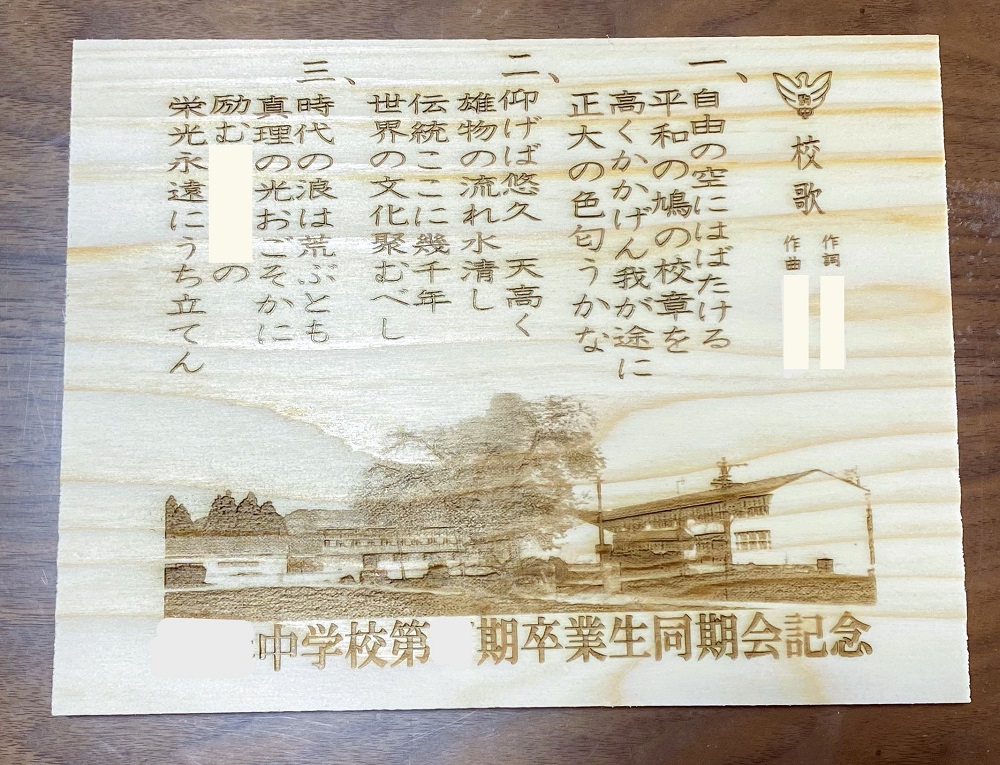 校歌
作詞
作曲
一、
自由の空にはばたける
平和の鳩の校章を
高くかかげん我が途に
正大の色匂うかな
二、
仰げば悠久 天高く
雄物の流れ水清し
伝統ここに幾千年
世界の文化聚むべし
三、
時代の浪は荒ぶとも
真理の光おごそかに
励む の
栄光永遠にうち立てん
中学校第 期卒業生同期会記念